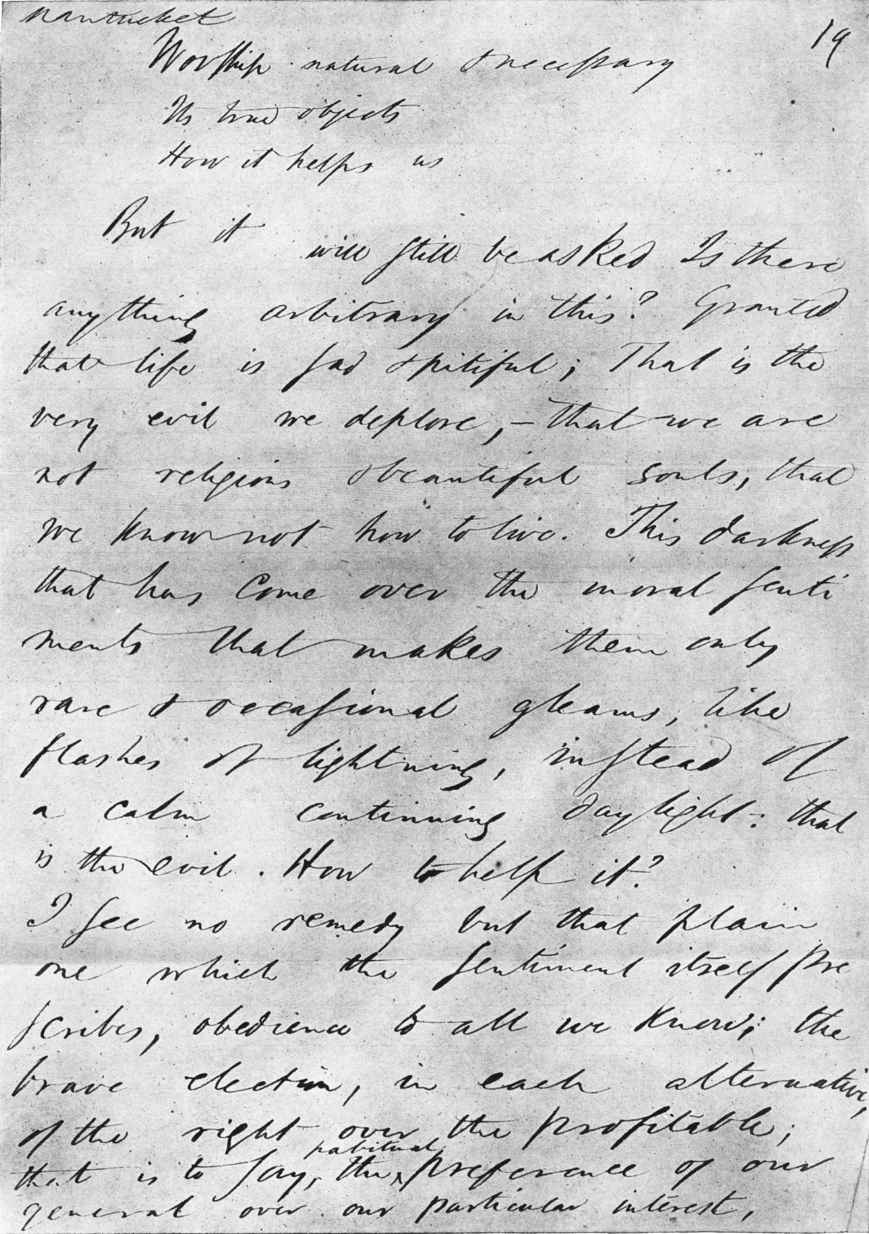 Nantucket
19
Worship natural & necessary
Its true objects
How it helps us
But it will still be asked Is there
anything arbitrary in this? Granted
that life is sad & pitiful; That is the
very evil we deplore, – that we are
not religious & beautiful souls, that
we know not how to live. This darkness
that has come over the moral senti
ments that makes them only
rare & occasional gleams, like
flashes of lightning, instead of
a calm continuing daylight: that
is the evil. How to help it?
I see no remedy but that plain
one which the sentiment itself pre
scribes, obedience to all we know; the
brave election, in each alternative,
of the right over the profitable;
habitual
that is to say, the ‸ preference of our
general over our particular interest,